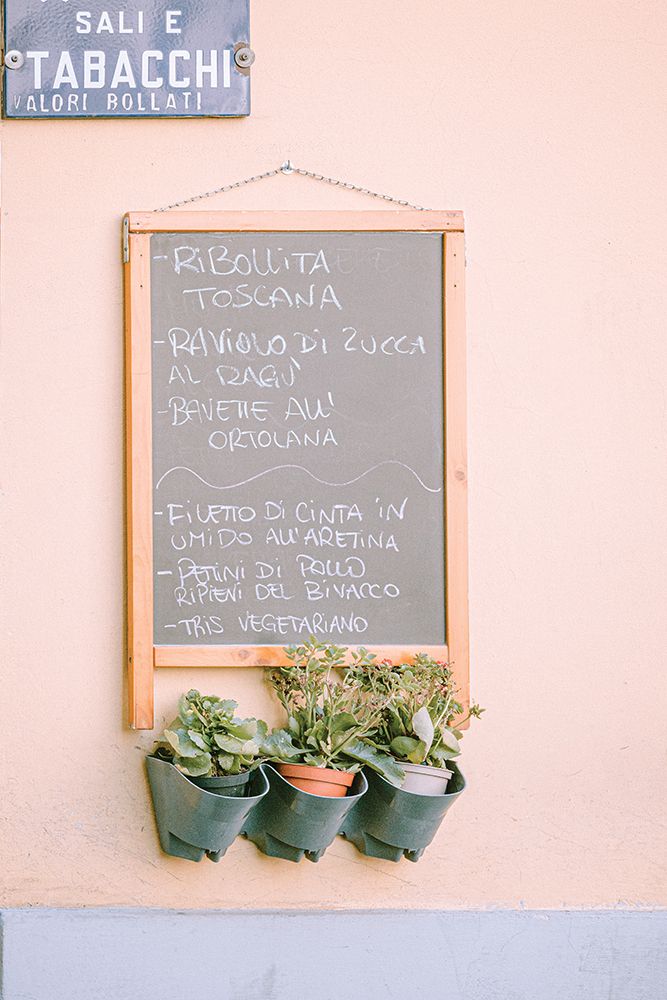 SALI E
TABACCHI
VALORI BOLLATI
- RIBOLLITA
TOSCANA
- RAVIOLO DI ZUCCA
AL RAGU'
- BAVETTE ALL'
ORTOLANA
- FILETTO DI CINTA IN
UMIDO ALL'ARETINA
- PETTINI DI POLLO
RIPIENI DEL BIVACCO
- TRIS VEGETARIANO